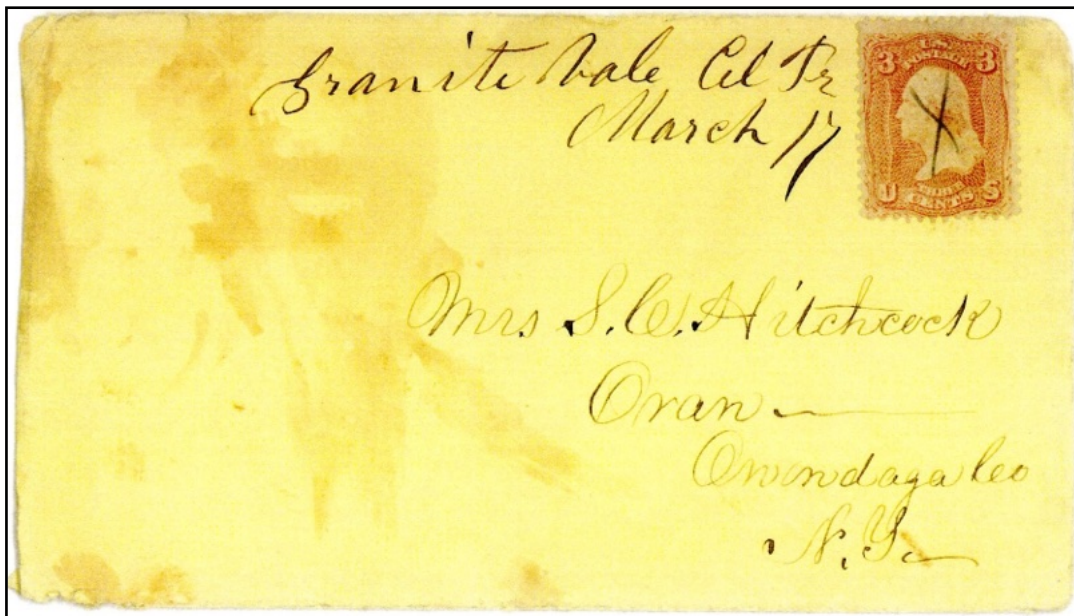 Granite Vale Col Tr
March 17
U.S.
POSTAGE
3 3
THREE
U CENTS S
Mrs S. C. Hitchcock
Oran
Onondaga Co
N.Y.